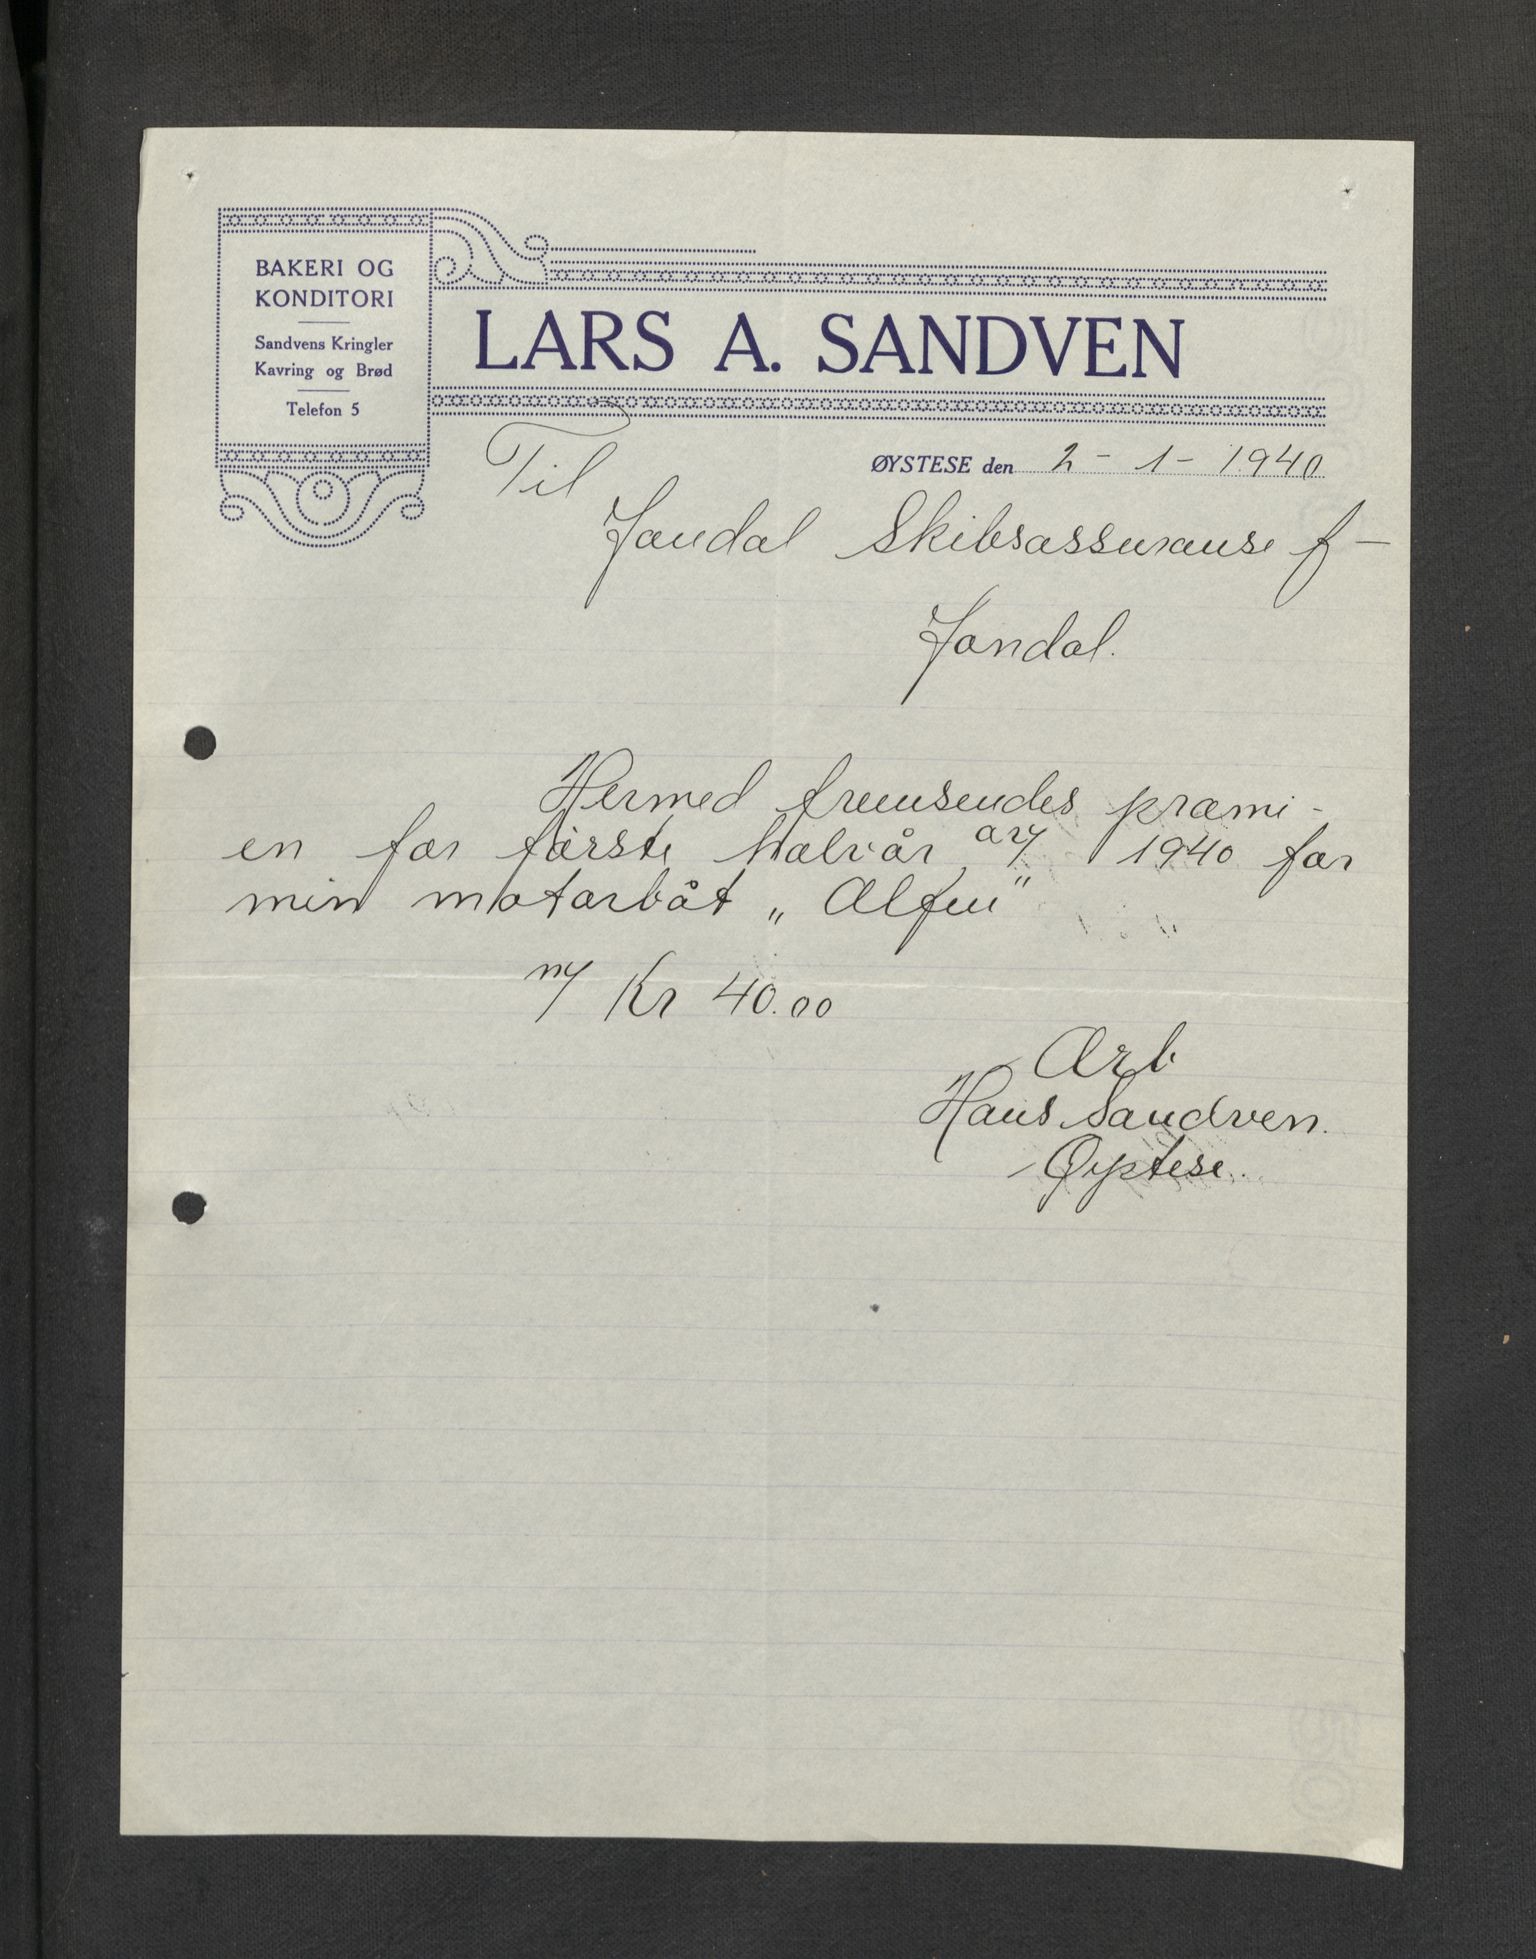 BAKERI OG
KONDITORI
Sandvens Kringler
Kavring og Brød
Telefon 5
LARS A. SANDVEN
ØYSTESE den 2 - 1 - 1940
Til
Jondal Skibsassuranse f -
Jondal.
Hermed fremsendes præmi -
en for første halvår av 1940 for
min motorbåt „ Alfen "
Kr 40.00
Ærb
Hans Sandven.
Øystese.